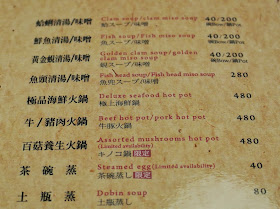 蛤蜊清湯/味噌 Clam soup/clam miso soup 40/200
蛤スープ/味噌
鮮魚清湯/味噌 Fish soup/Fish miso soup 40/200
魚スープ/味噌
黃金蜆清湯/味噌 Golden clam soup/golden clam miso soup 40/200
蜆スープ/味噌
魚頭清湯/味噌 Fish head soup/Fish head miso soup 280
魚兜スープ/味噌
極品海鮮火鍋 Deluxe seafood hot pot 480
極上海鮮鍋
牛/豬肉火鍋 Beef hot pot/pork hot pot 480
牛豚火鍋
百菇養生火鍋 Assorted mushrooms hot pot (Limited availability) 480
キノコ鍋 限定
茶碗蒸 Steamed egg (Limited availability) 40
茶碗蒸し 限定
土瓶蒸 Dobin soup 80
土瓶蒸し